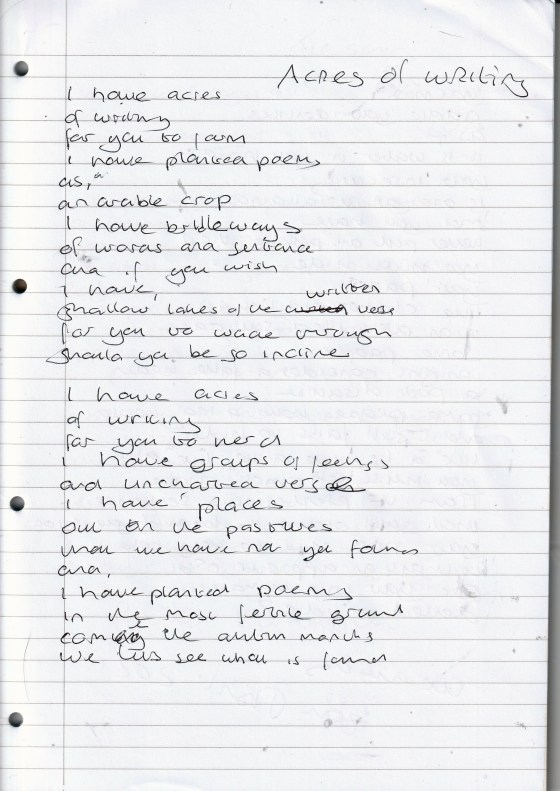 Acres of writing
I have acres
of writing
for you to farm
I have planted poems
as, a
an arable crop
I have bridleways
of words and sentance
and if you wish
I have,
written
shallow lakes of the verse
for you to wade through
should you be so incline
I have acres
of writing
for you to herd
I have groups of feelings
and uncharted verse
I have places
out on the pastures
that we have not yet found
and,
I have planted poems
in the most fertile ground
come the autumn months
we lets see what is found